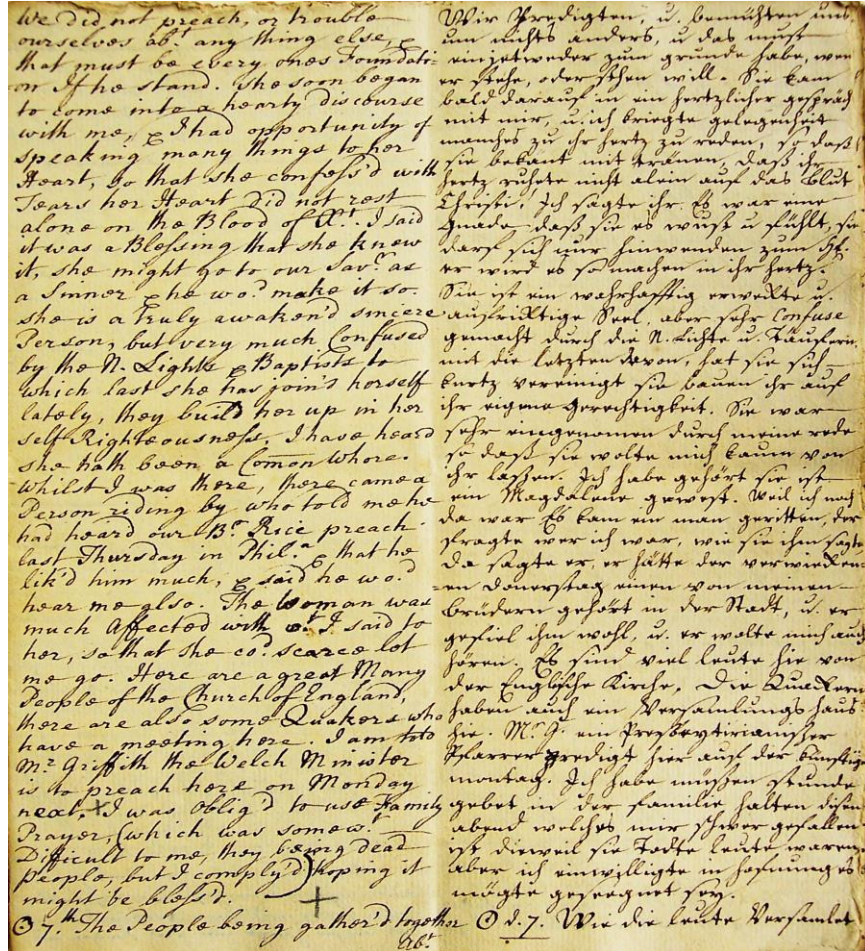 we did not preach, or trouble
ourselves abt. any thing else, &
that must be every ones Foundati=
on If he stand. she soon began
to come into a hearty discourse
with me, & I had opportunity of
speaking many things to her
Heart, so that she confess'd with
Tears her Heart did not rest
alone on the Blood of Xt. I said
it was a Blessing that she knew
it, she might go to our Savr. as
a Sinner & he wod. make it so.
she is a truly awaken'd sincere
Person, but very much Confused
by the N. Lights & Baptists to
which last she has join'd herself
lately, they build her up in her
self Righteousness. I have heard
she hath been a Comon Whore.
whilst I was there, there came a
Person riding by who told me he
had heard our Br. Rice preach
last Thursday in Phila. & that he
lik'd him much, & said he wod.
hear me also. The woman was
much Affected with wt. I said to
her, so that she cod. scarce let
me go. Here are a great Many
People of the Church of England,
there are also some Quakers who
have a meeting here. I am told
Mr. Griffith the Welch Minister
is to preach here on Monday
next, + I was Oblig'd to use Family
Prayer, (which was somewt.
Difficult to me, they being dead
people, but I comply'd) hoping it
might be bless'd. +
☉ 7.th The People being gather'd together
abt.
Wir Predigten, u. bemühten uns
um nichts anders, u das must
ein jetweder zum grunde habe, wen
er stehe, oder stehen will. Sie kam
bald darauf in ein hertzlicher gespräch
mit mir, u. ich kriegte gelegenheit
manches zu ihr hertz zu reden, so daß
sie bekant mit tränen, daß ihr
hertz ruhete nicht alein auf das Blut
Christi. Ich sagte ihr. Es war eine
Gnade daß sie es wust u fühlt, sie
darf sich nur hinwenden zum Hld.
er wird es so machen in ihr hertz.
Sie ist ein wahrhafftig erwekte u.
aufrichtige Seel, aber sehr Confuse
gemacht durch die N. Lichte u. Täufern,
mit die letzten davon, hat sie sich
kurtz vereinigt sie bauen ihr auf
ihr eigene Gerechtigkeit. Sie war
sehr eingenomen durch meine rede
so daß sie wolte mich kaum von
ihr laßen. Ich habe gehört sie ist
ein Magdalene gewest. Weil ich noch
da war Es kam ein man geritten, der
fragte wer ich war, wie sie ihm sagte
da sagte er, er hätte der verwichen=
=en donerstag einen von meinen
Brüdern gehört in der Stadt, u. er
gefiel ihm wohl, u. er wolte mich auch
hören. Es sind viel leute hie von
der Englische Kirche, Die Quakern
haben auch ein Versamlungs haus
hie. Mr. G. ein Presbeytirianischer
Pfarrer predigt hier auf der künftige
montag. Ich habe müßen stunde
gebet in der familie halten disen
abend welches mir schwer gefallen
ist dieweil sie Todte leute waren,
aber ich einwilligte in hofnung es
mögte geseegnet sey.
☉ d. 7. Wie die leute Versamlet